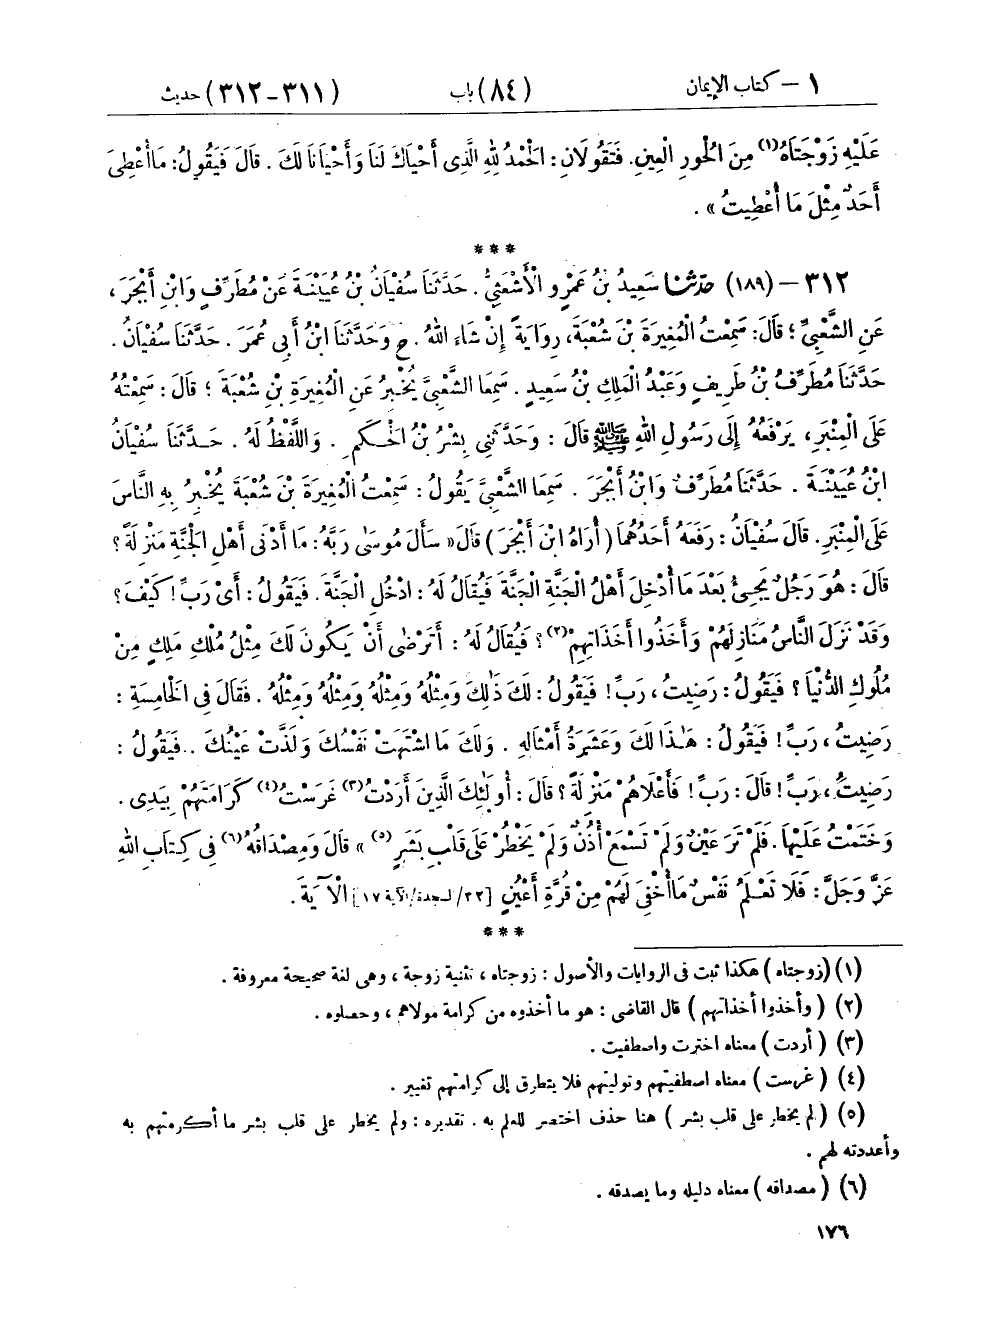 ١ – كتاب الإيمان (٨٤) باب (٣١١-٣١٢) حديث
عَلَيْهِ زَوْجَتَاهُ(١) مِنَ الْحُورِ الْعِينِ. فَتَقُولَانِ: الْحَمْدُ لِلّٰهِ الَّذِى أَحْيَاكَ لَنَا وَأَحْيَانَا لَكَ. قَالَ فَيَقُولُ: مَا أُعْطِىَ
أَحَدٌ مِثْلَ مَا أُعْطِيتُ».
***
٣١٢ – (١٨٩) حَدَّثَنَا سَعِيدُ بْنُ عَمْرٍو الْأَشْعَثِيُّ. حَدَّثَنَا سُفْيَانُ بْنُ عُيَيْنَةَ عَنْ مُطَرِّفٍ وَابْنِ أَبْجَرَ،
عَنِ الشَّعْبِيِّ؛ قَالَ: سَمِعْتُ الْمُغِيرَةَ بْنَ شُعْبَةَ، رِوَايَةً إِنْ شَاءَ اللهُ. ح وَحَدَّثَنَا ابْنُ أَبِى عُمَرَ. حَدَّثَنَا سُفْيَانُ.
حَدَّثَنَا مُطَرِّفُ بْنُ طَرِيفٍ وَعَبْدُ الْمَلِكِ بْنُ سَعِيدٍ. سَمِعَا الشَّعْبِيَّ يُخْبِرُ عَنِ الْمُغِيرَةِ بْنِ شُعْبَةَ؛ قَالَ: سَمِعْتُهُ
عَلَى الْمِنْبَرِ، يَرْفَعُهُ إِلَى رَسُولِ اللهِ ﷺ قَالَ: وَحَدَّثَنِى بِشْرُ بْنُ الْحَكَمِ. وَاللَّفْظُ لَهُ. حَدَّثَنَا سُفْيَانُ
ابْنُ عُيَيْنَةَ. حَدَّثَنَا مُطَرِّفٌ وَابْنُ أَبْجَرَ. سَمِعَا الشَّعْبِيَّ يَقُولُ: سَمِعْتُ الْمُغِيرَةَ بْنَ شُعْبَةَ يُخْبِرُ بِهِ النَّاسَ
عَلَى الْمِنْبَرِ. قَالَ سُفْيَانُ: رَفَعَهُ أَحَدُهُمَا (أُرَاهُ ابْنَ أَبْجَرَ) قَالَ «سَأَلَ مُوسَى رَبَّهُ: مَا أَدْنَى أَهْلِ الْجَنَّةِ مَنْزِلَةً؟
قَالَ: هُوَ رَجُلٌ يَجِىءُ بَعْدَ مَا أُدْخِلَ أَهْلُ الْجَنَّةِ الْجَنَّةَ فَيُقَالُ لَهُ: ادْخُلِ الْجَنَّةَ. فَيَقُولُ: أَىْ رَبِّ! كَيْفَ؟
وَقَدْ نَزَلَ النَّاسُ مَنَازِلَهُمْ وَأَخَذُوا أَخَذَاتِهِمْ(٢)؟ فَيُقَالُ لَهُ: أَتَرْضَى أَنْ يَكُونَ لَكَ مِثْلُ مُلْكِ مَلِكٍ مِنْ
مُلُوكِ الدُّنْيَا؟ فَيَقُولُ: رَضِيتُ، رَبِّ! فَيَقُولُ: لَكَ ذَلِكَ وَمِثْلُهُ وَمِثْلُهُ وَمِثْلُهُ وَمِثْلُهُ. فَقَالَ فِى الْخَامِسَةِ:
رَضِيتُ، رَبِّ! فَيَقُولُ: هَـٰذَا لَكَ وَعَشَرَةُ أَمْثَالِهِ. وَلَكَ مَا اشْتَهَتْ نَفْسُكَ وَلَذَّتْ عَيْنُكَ. فَيَقُولُ:
رَضِيتُ، رَبِّ! قَالَ: رَبِّ! فَأَعْلَاهُمْ مَنْزِلَةً؟ قَالَ: أُولَئِكَ الَّذِينَ أَرَدْتُ(٣) غَرَسْتُ(٤) كَرَامَتَهُمْ بِيَدِى.
وَخَتَمْتُ عَلَيْهَا. فَلَمْ تَرَ عَيْنٌ وَلَمْ تَسْمَعْ أُذُنٌ وَلَمْ يَخْطُرْ عَلَى قَلْبِ بَشَرٍ(٥)» قَالَ وَمِصْدَاقُهُ(٦) فِى كِتَابِ اللهِ
عَزَّ وَجَلَّ: فَلَا تَعْلَمُ نَفْسٌ مَا أُخْفِىَ لَهُمْ مِنْ قُرَّةِ أَعْيُنٍ [٣٢/السجدة/الآية ١٧] الْآيَةَ.
***
(١) (زوجتاه) هكذا ثبت فى الروايات والأصول: زوجتاه، تثنية زوجة، وهى لغة صحيحة معروفة.
(٢) (وأخذوا أخذاتهم) قال القاضى: هو ما أخذوه من كرامة مولاهم، وحصلوه.
(٣) (أردت) معناه اخترت واصطفيت.
(٤) (غرست) معناه اصطفيتهم وتوليتهم فلا يتطرق إلى كرامتهم تغيير.
(٥) (لم يخطر على قلب بشر) هنا حذف اختصر للعلم به. تقديره: ولم يخطر على قلب بشر ما أكرمتهم به
وأعددته لهم.
(٦) (مصداقه) معناه دليله وما يصدقه.
١٧٦